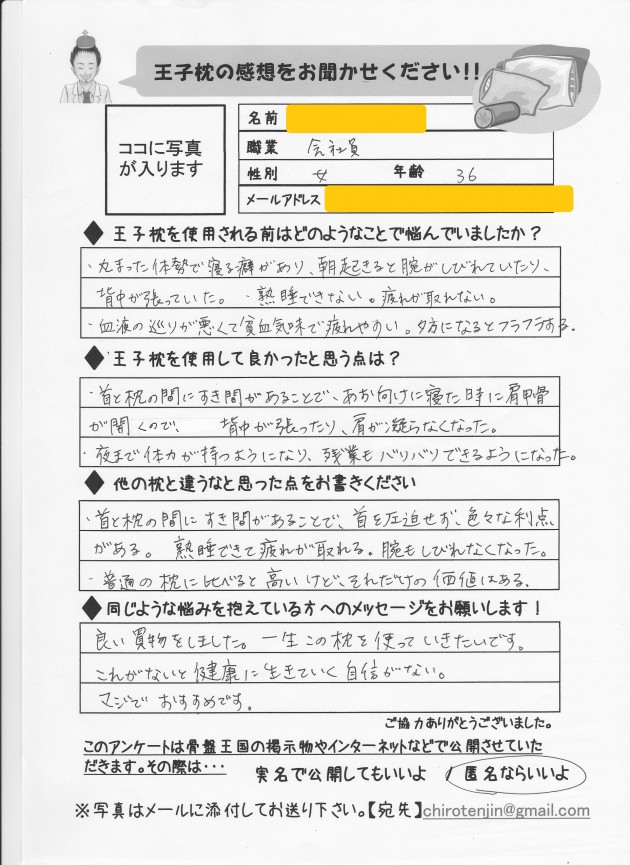 王子枕の感想をお聞かせください!!
ココに写真
が入ります
名前
職業 会社員
性別 女 年齢 36
メールアドレス
◆王子枕を使用される前はどのようなことで悩んでいましたか?
・丸まった体勢で寝る癖があり、朝起きると腕がしびれていたり、
背中が張っていた。・熟睡できない。疲れが取れない。
・血液の巡りが悪くて貧血気味で疲れやすい。夕方になるとフラフラする.
◆王子枕を使用して良かったと思う点は?
・首と枕の間にすき間があることで、あお向けに寝た時に肩甲骨
が開くので、 背中が張ったり、肩が凝らなくなった。
・夜まで体力が持つようになり、残業もバリバリできるようになった。
◆他の枕と違うなと思った点をお書きください
・首と枕の間にすき間があることで、首を圧迫せず、色々な利点
がある。熟睡できて疲れが取れる。腕もしびれなくなった。
・普通の枕に比べると高いけど、それだけの価値はある.
◆同じような悩みを抱えている方へのメッセージをお願いします!
良い買物をしました。一生この枕を使っていきたいです。
これがないと健康に生きていく自信がない。
マジでおすすめです。
ご協力ありがとうございました。
このアンケートは骨盤王国の掲示物やインターネットなどで公開させていた
だきます。その際は・・・ 実名で公開してもいいよ / 匿名ならいいよ
※写真はメールに添付してお送り下さい。【宛先】chirotenjin@gmail.com